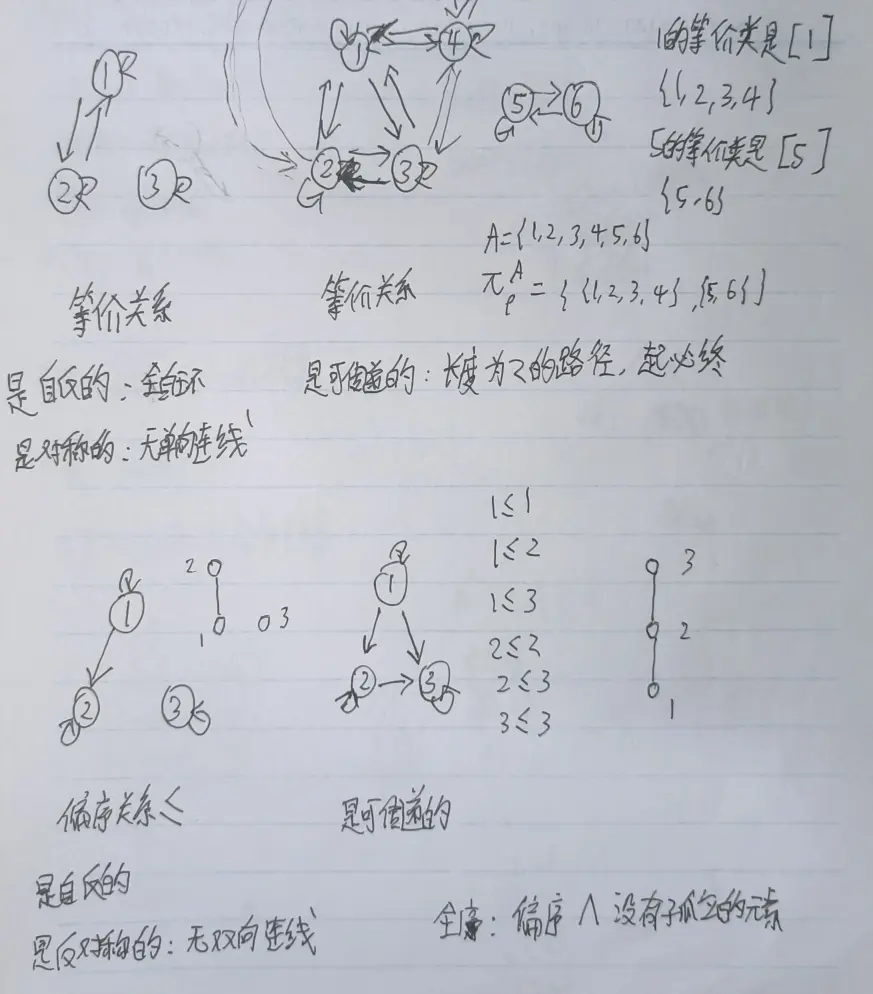 1的等价类是[1]
{1,2,3,4}
5的等价类是[5]
{5,6}
1
2
3
1
4
2
3
5
6
A={1,2,3,4,5,6}
π_ρ^A = {{1,2,3,4},{5,6}}
等价关系
等价关系
是自反的:全自环
是对称的:无单向连线
是可传递的:长度为2的路径,起必终
1
2
3
2
1
3
1
2
3
1≤1
1≤2
1≤3
2≤2
2≤3
3≤3
3
2
1
偏序关系≤
是可传递的
是自反的
是反对称的:无双向连线
全序:偏序 ∧ 没有孤立的元素